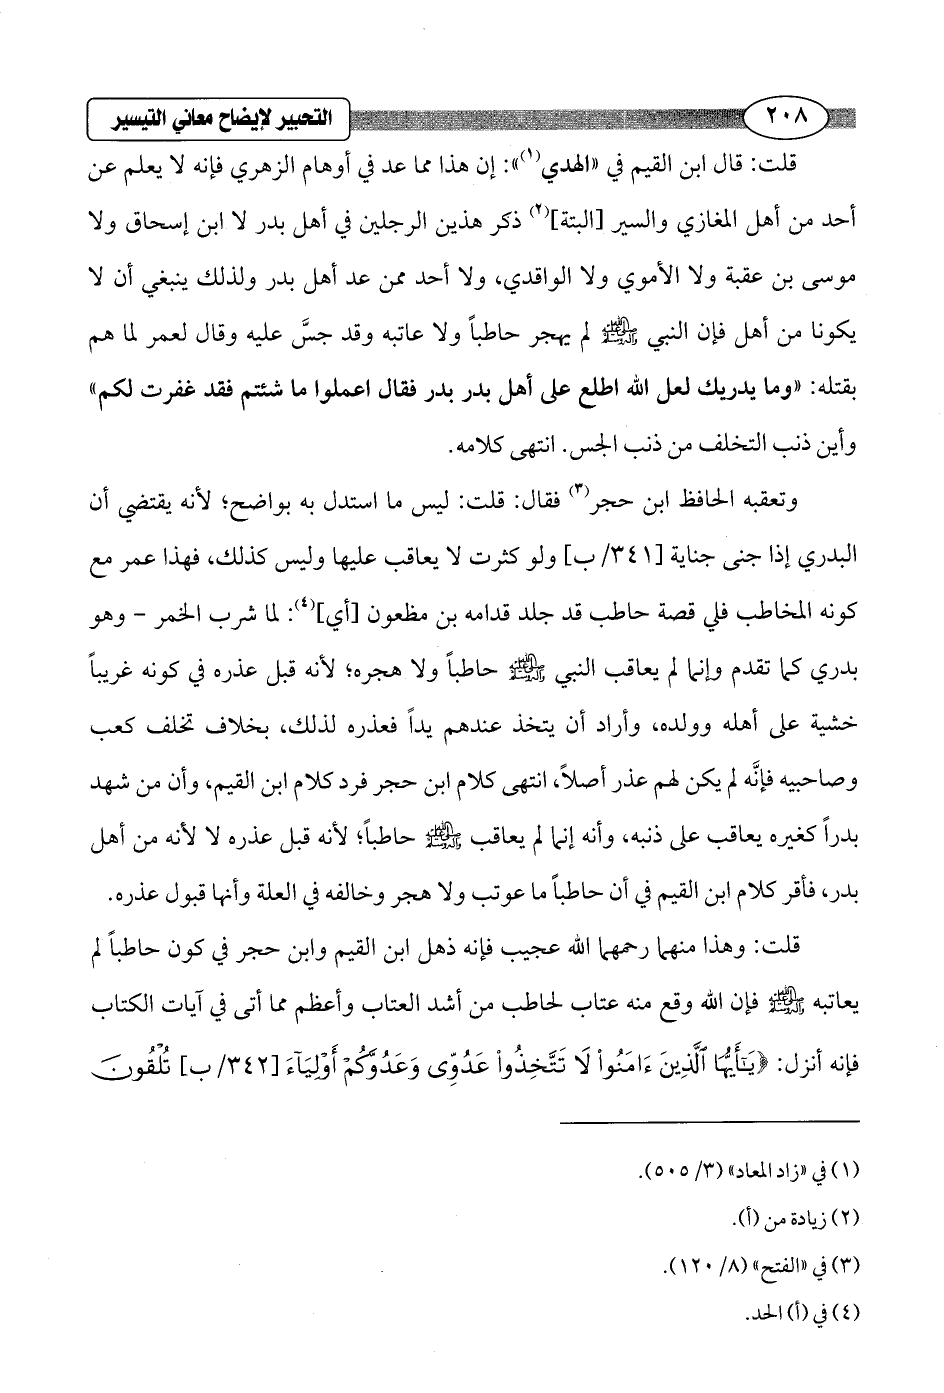 ٢٠٨ التحبير لإيضاح معاني التيسير
قلت: قال ابن القيم في «الهدي(١)»: إن هذا مما عد في أوهام الزهري فإنه لا يعلم عن
أحد من أهل المغازي والسير [البتة](٢) ذكر هذين الرجلين في أهل بدر لا ابن إسحاق ولا
موسى بن عقبة ولا الأموي ولا الواقدي، ولا أحد ممن عد أهل بدر ولذلك ينبغي أن لا
يكونا من أهل فإن النبي ﷺ لم يهجر حاطباً ولا عاتبه وقد جسَّ عليه وقال لعمر لما هم
بقتله: «وما يدريك لعل الله اطلع على أهل بدر بدر فقال اعملوا ما شئتم فقد غفرت لكم»
وأين ذنب التخلف من ذنب الجس. انتهى كلامه.
وتعقبه الحافظ ابن حجر(٣) فقال: قلت: ليس ما استدل به بواضح؛ لأنه يقتضي أن
البدري إذا جنى جناية [٣٤١/ ب] ولو كثرت لا يعاقب عليها وليس كذلك، فهذا عمر مع
كونه المخاطب فلي قصة حاطب قد جلد قدامه بن مظعون [أي](٤): لما شرب الخمر - وهو
بدري كما تقدم وإنما لم يعاقب النبي ﷺ حاطباً ولا هجره؛ لأنه قبل عذره في كونه غريباً
خشية على أهله وولده، وأراد أن يتخذ عندهم يداً فعذره لذلك، بخلاف تخلف كعب
وصاحبيه فإنَّه لم يكن لهم عذر أصلاً، انتهى كلام ابن حجر فرد كلام ابن القيم، وأن من شهد
بدراً كغيره يعاقب على ذنبه، وأنه إنما لم يعاقب ﷺ حاطباً؛ لأنه قبل عذره لا لأنه من أهل
بدر، فأقر كلام ابن القيم في أن حاطباً ما عوتب ولا هجر وخالفه في العلة وأنها قبول عذره.
قلت: وهذا منهما رحمهما الله عجيب فإنه ذهل ابن القيم وابن حجر في كون حاطباً لم
يعاتبه ﷺ فإن الله وقع منه عتاب لحاطب من أشد العتاب وأعظم مما أتى في آيات الكتاب
فإنه أنزل: ﴿يَٰٓأَيُّهَا ٱلَّذِينَ ءَامَنُواْ لَا تَتَّخِذُواْ عَدُوِّى وَعَدُوَّكُمْ أَوْلِيَآءَ [٣٤٢/ ب] تُلْقُونَ
(١) في «زاد المعاد» (٣/ ٥٠٥).
(٢) زيادة من (أ).
(٣) في «الفتح» (٨/ ١٢٠).
(٤) في (أ) الحد.